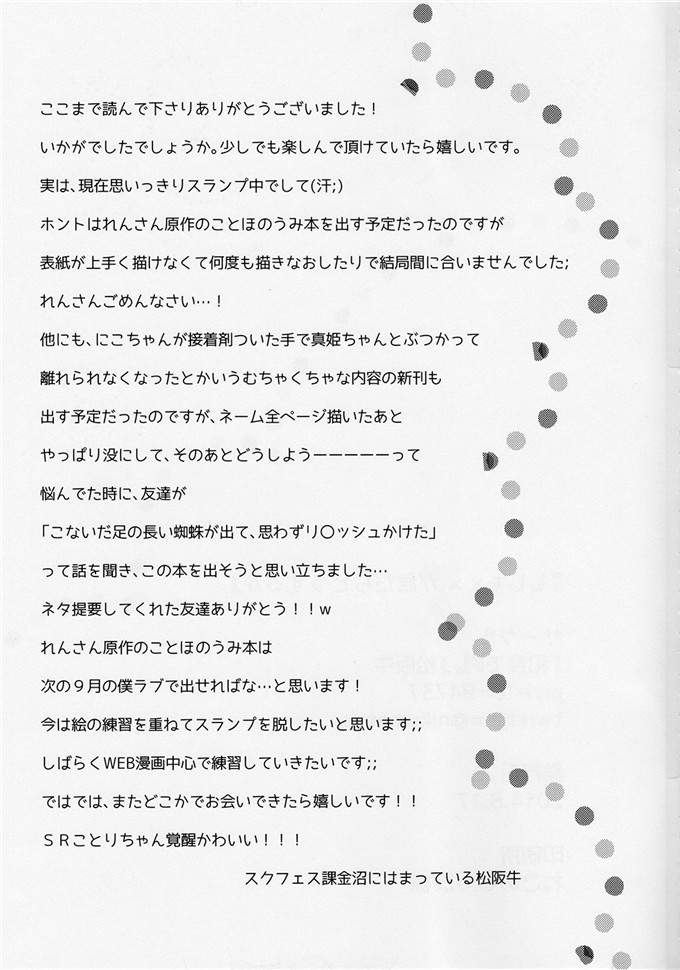 ここまで読んで下さりありがとうございました！
いかがでしたでしょうか。少しでも楽しんで頂けていたら嬉しいです。
実は、現在思いっきりスランプ中でして(汗;)
ホントはれんさん原作のことほのうみ本を出す予定だったのですが
表紙が上手く描けなくて何度も描きなおしたりで結局間に合いませんでした;
れんさんごめんなさい…！
他にも、にこちゃんが接着剤ついた手で真姫ちゃんとぶつかって
離れられなくなったとかいうむちゃくちゃな内容の新刊も
出す予定だったのですが、ネーム全ページ描いたあと
やっぱり没にして、そのあとどうしようーーーーーって
悩んでた時に、友達が
「こないだ足の長い蜘蛛が出て、思わずリ〇ッシュかけた」
って話を聞き、この本を出そうと思い立ちました…
ネタ提要してくれた友達ありがとう！！w
れんさん原作のことほのうみ本は
次の９月の僕ラブで出せればな…と思います！
今は絵の練習を重ねてスランプを脱したいと思います;;
しばらくWEB漫画中心で練習していきたいです;;
ではでは、またどこかでお会いできたら嬉しいです！！
ＳＲことりちゃん覚醒かわいい！！！
スクフェス課金沼にはまっている松阪牛